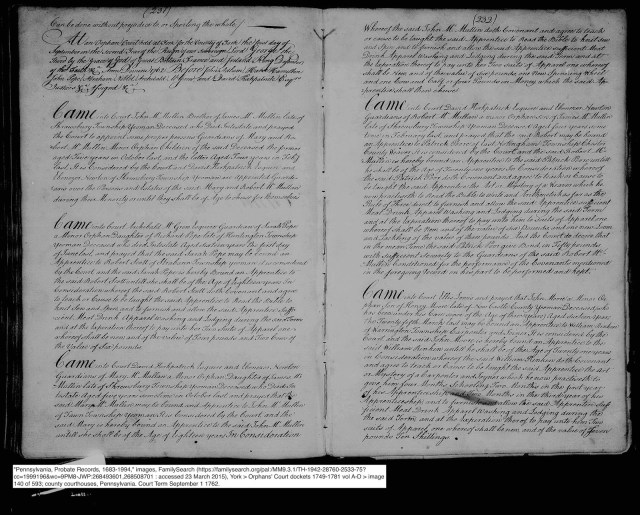 (231)
Can be done without prejudice to or Spoiling the whole)
At an Orphans Court held at York for the County of York the first day of
September in the Second Year of the Reign of our Sovereign Lord George the
Third by the grace of God of Great Britain France and Ireland King Defender
of the Faith &c Anno Domini 1762 Before John Adlum
Esquires &c
Came into Court John Mc Mullen Brother of James Mc Mullen late of
Shrewsbury Township Yeoman Deceased who Died Intestate and prayed
the Court to appoint some proper persons Guardians of Mary and
Robert Mc Mullen Minor Orphan Children of the said Deceased the former
aged Five years in October last, and the latter Aged Four years in
last. It is Considered by the Court and David Kirkpatrick Esquire and
Ebenezer Newton of Shrewsbury Township Yeoman are Appointed Guardi-
ans over the Persons and Estates of the said Mary and Robert Mc Mullen
during their Minority or until they shall be of Age to chuse for themselves
Came into Court Archibald Mc Grew Esquire Guardian of Sarah Pope
a Minor Orphan Daughter of Richard Pope late of Township
Yeoman Deceased who died Intestate Aged six years the first day
of and prayed that the said Sarah Pope may be bound an
Apprentice to Robert Scott of Township Yeoman. It is Considered
by the Court and the said Sarah Pope is hereby Bound an Apprentice to
the said Robert Scott until she shall be of the Age of Eighteen years In
Consideration whereof the said Robert doth Covenant and agree
to teach or Cause to be taught the said Apprentice to Read the Bible to
knit Sew and Spin and to furnish and allow the said Apprentice suffi-
cient Meat Drink Apparel Washing and Lodging during the said Term
and at the expiration thereof to pay unto her Two suits of Apparel one
whereof shall be new and of the value of Four pounds and Two Cows of
the Value of Six pounds.
Came into Court David Kirkpatrick Esquire and Ebenezer Newton
Guardians of Mary Mc Mullen a Minor Orphan Daughter of James Mc
Mullen late of Shrewsbury Township Yeoman Deceased who Died In-
testate Aged five years in October last and prayed that the
said Mary Mc Mullen may be Bound an Apprentice to John Mc Mullen
of Fawn Township Yeoman It is Considered by the Court and the
said Mary is hereby Bound an Apprentice to the said John Mc Mullen
until she shall be of the Age of Eighteen years In Consideration
(232)
Whereof the said John Mc Mullen doth Covenant and agree to teach
or cause to be taught the said Apprentice to Read the Bible to knit Sew
and Spin and to furnish and allow the said Apprentice sufficient Meat
Drink Apparel Washing and Lodging during the said Term and at
the expiration thereof to pay unto her Two Suits of Apparel one whereof
shall be new and of the value of Six pounds one new Spinning Wheel
and one Cow and Calf or Four Pounds in Money which the said Ap-
prentice shall then choose
Came into Court David Kirkpatrick Esquire and Ebenezer Newton
Guardians of Robert Mc Mullen a minor Orphan Son of James Mc Mullen
late of Shrewsbury Township Yeoman Deceased Aged four years
in February last and prayed that the said Robert may be bound
an Apprentice to Patrick Poor of East Nottingham Township Chester
County Weaver. It is Considered by the Court and the said Robert Mc
Mullen is hereby bound an Apprentice to the said Patrick Poor until
he shall be of the Age of Twenty one years In Consideration whereof
the said Patrick Poor doth Covenant and agree to teach or Cause to
be taught the said Apprentice the Art or Mystery of a Weaver which he
now practiseth to Read the Bible to write and Arithmetic as far as the
Rule of Three direct to furnish and allow the said Apprentice sufficient
Meat Drink Apparel Washing and Lodging during the said Term
and at the Expiration thereof to pay unto him Two Suits of Apparel one
whereof shall be new and of the value of pounds and one new Loom
and Tackling of the value of three pounds. And the Court do Order that
in the mean time the said Patrick Poor give Bond in Fifty pounds
with sufficient Security to the Guardians of the said Robert Mc
Mullen Conditioned for the performance of the Covenants mentioned
in the foregoing on his part to be performed and kept.
Came into Court Ellis Lewis and prayed that John Morri a Minor Or-
phan Son of late of New Castle County Yeoman Deceased who
has of the Age of thirteen years
the Twenty fifth may be bound an Apprentice to William Kersey
of Warrington Township It is Considered by the
Court and the said John Morri is hereby bound an Apprentice to the
said William until he shall be of the Age of Twenty one years
in Consideration whereof the said William doth Covenant
and agree to teach or cause to be taught the said Apprentice the Art
or Mystery of a which he now practiseth to
give him four Months Schooling Two Months in the first year
of his Apprenticeship and Two Months in the third year of his
Apprenticeship and to furnish and allow the said Apprentice suf-
ficient Meat Drink Apparel Washing and Lodging during the
the said Term and at the Expiration thereof to pay unto him Two
suits of Apparel one whereof shall be new and of the value of
pounds Ten Shillings
"Pennsylvania, Probate Records, 1683-1994," images, FamilySearch (https://familysearch.org/pal:/MM9.3.1/TH-1942-28760-2533-75?
cc=1999196&wc=9PM8-JWP:268493601,268508701 : accessed 23 March 2015), York > Orphans' Court dockets 1749-1781 vol A-D > image
140 of 593; county courthouses, Pennsylvania. Court Term September 1 1762.